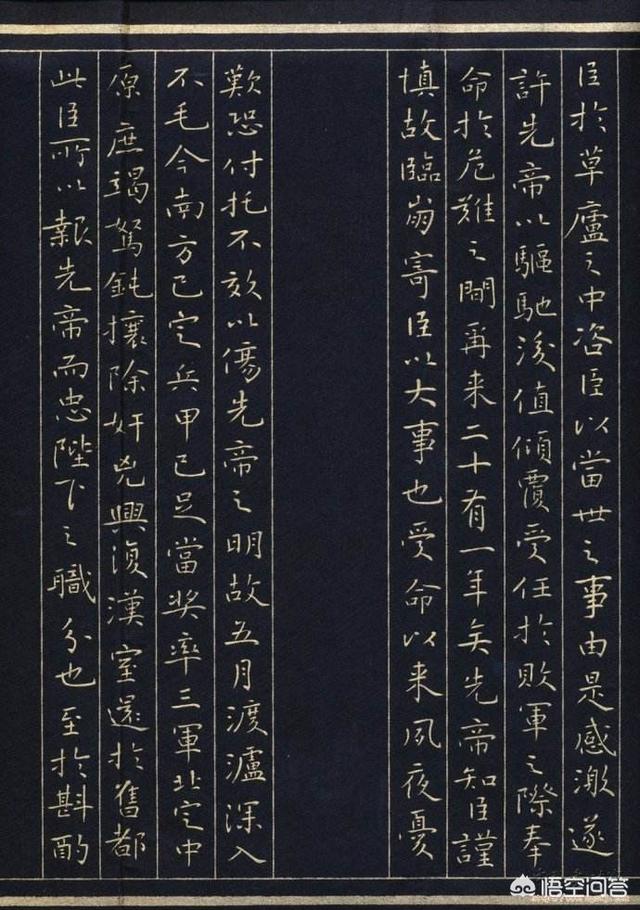 臣於草廬之中咨臣以當世之事由是感激遂
許先帝以驅馳後值傾覆受任於敗軍之際奉
命於危難之間再来二十有一年矣先帝知臣謹
慎故臨崩寄臣以大事也受命以来夙夜憂
歎恐付托不效以傷先帝之明故五月渡瀘深入
不毛今南方已定兵甲已足當奖率三軍北定中
原庶竭駑鈍攘除奸兇興復漢室還於舊都
此臣所以報先帝而忠陛下之職分也至於斟酌
悟空问答